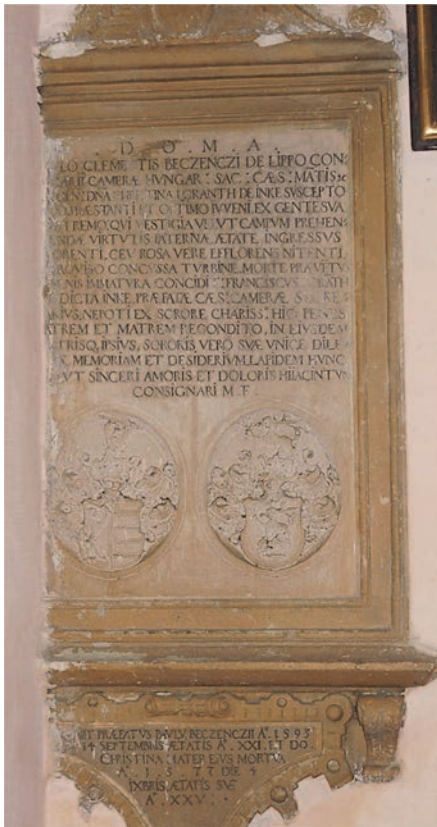 D. O. M. A.
LO CLEMETIS BECZENCZI DE LIPPO CON:
CAMERÆ HVNGAR: SAC: CÆS: MATIS:
GRANTH DE INKE SVSCEPTO
PRÆSTANTI ET OPTIMO IVVENI, EX GENTE SVA
QVI VESTIGIA VELVT CAMPVM PREHEN:
VIRTVTIS PATERNÆ, ÆTATE INGRESSVS
CEV ROSA VERE EFFLORENS NITENTI,
CONCVSSA TVRBINE, MORTE
IMMATVRA CONCIDI FRANCISCVS
DICTA INKE, PRÆFATÆ CÆS: CAMERÆ
NEPOTI EX SORORE CHARISS: HIC PENES
ATREM ET MATREM RECONDITO, IN EIVSDEM
IPSIVS, SORORIS VERO SVÆ VNICE DILE
MEMORIAM ET DESIDERIVM, LAPIDEM HVNC
VT SINCERI AMORIS ET DOLORIS HIIACINTVM
CONSIGNARI M F.
PRÆFATVS PAVLVS BECZENCZII Aº. 1593
14 SEPTEMBRIS ÆTATIS Aº. XXI. ET DO:
CHRISTINA MATER EIVS MORTVA
Aº. 1577 DIE 4
IXBRIS, ÆTATIS SVÆ
Aº. XXV.